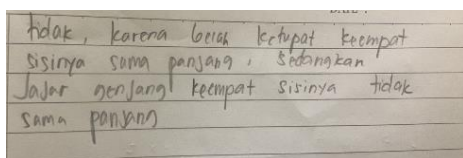 tidak, karena belah ketupat keempat
sisinya sama panjang, sedangkan
Jajar genjang keempat sisinya tidak
sama panjang